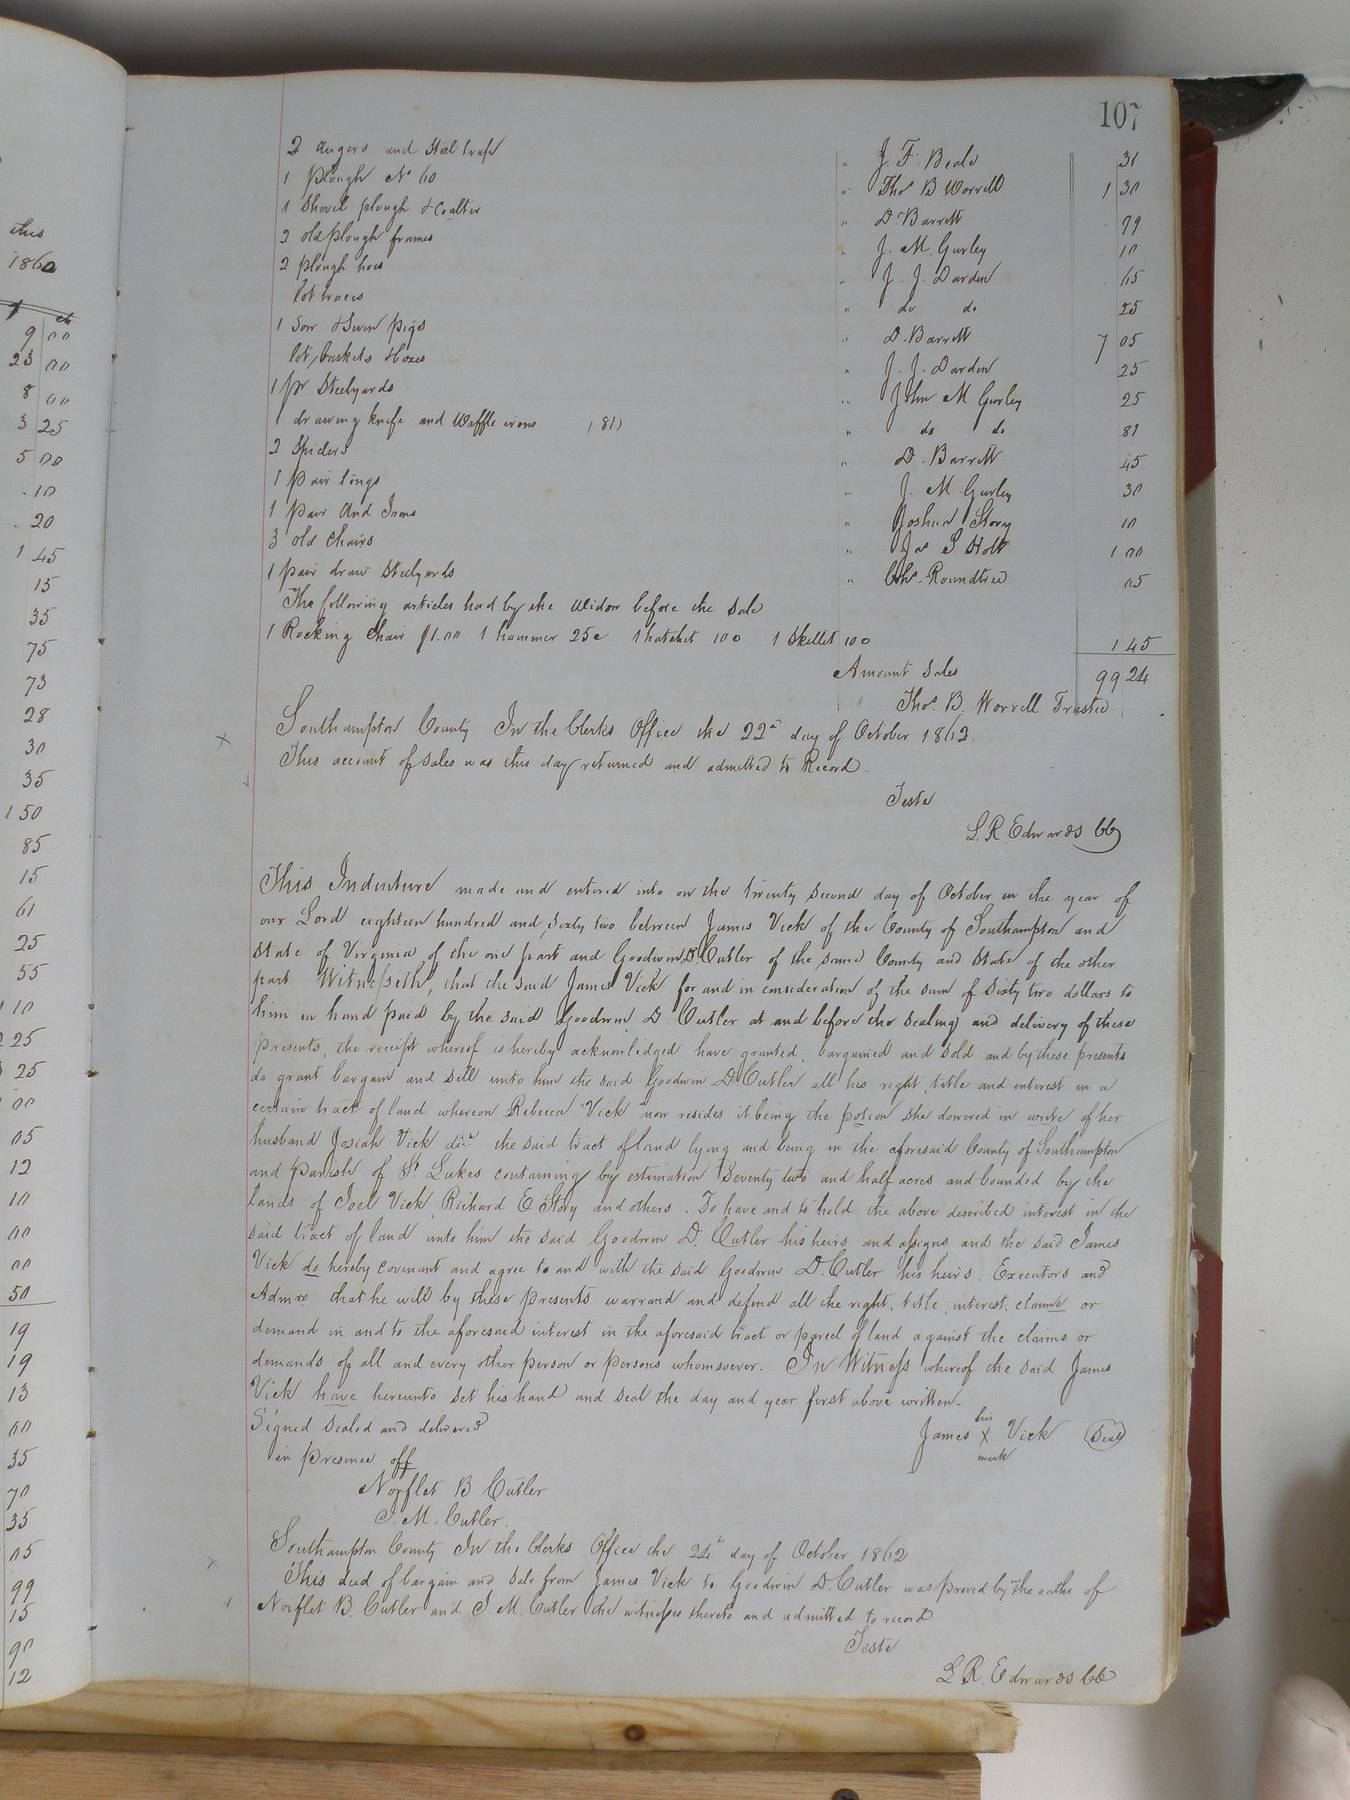 this
1860
$ cts
9 00
23 00
8 00
3 25
5 00
.10
.20
1 45
15
35
75
73
28
30
35
1 50
85
15
61
25
55
1 10
25
25
00
05
12
10
00
00
50
19
19
13
00
35
70
35
05
99
15
90
12
107
2 augers and Steel trap " J. F. Beale 31
1 plough No 60 " Thos B Worrell 1 30
1 Shovel plough & Coalter " D. Barrett 99
2 old plough frames " J. M. Gurley 10
2 plough hoes " J. J. Darden 65
lot traces " do do 25
1 Sow & Seven pigs " D. Barrett 7 05
lot, baskets & boxes " J. J. Darden 25
1 pr Steelyards " John M Gurley 25
1 drawing knife and Waffle irons (81) " do do 81
2 Spiders " D. Barrett 45
1 pair tongs " J. M Gurley 30
1 pair And Irons " Joshua Story 10
3 old Chairs " Jas S Holt 1 00
1 pair draw Steelyards " Roundtree 05
The following articles had by the Widow before the Sale
1 Rocking Chair $1.00 1 hammer 25c 1 hatchet 10 o 1 Skillet 10 o 1 45
Amount Sales 99 24
Thos. B. Worrell Trustee.
Southampton County In the Clerks Office the 22d day of October 1862.
This account of Sales was this day returned and admitted to Record.
Teste
L. R. Edwards CC
This Indenture made and entered into on the twenty second day of October in the year of
our Lord eighteen hundred and Sixty two between James Vick of the County of Southampton and
State of Virginia of the one part and Goodwin D. Cutler of the same County and State of the other
part Witnesseth, that the said James Vick for and in consideration of the sum of Sixty two dollars to
him in hand paid by the said Goodwin D. Cutler at and before the Sealing and delivery of these
presents, the receipt whereof is hereby acknowledged have granted, bargained and Sold and by these presents
do grant bargain and Sell unto him the said Goodwin D. Cutler all his right, title and interest in a
certain tract of land whereon Rebecca Vick now resides it being the potion she dowered in write of her
husband Josiah Vick decd the said tract of land lying and being in the aforesaid County of Southampton
and parish of St. Lukes containing by estimation Seventy two and half acres and bounded by the
Lands of Joel Vick, Richard E Story and others. To have and to hold the above described interest in the
said tract of land unto him the said Goodwin D. Cutler his heirs and assigns and the said James
Vick do hereby covenant and agree to and with the said Goodwin D. Cutler his heirs, Executors and
Admrs that he will by these presents warrand and defend all the right, title, interest, claime or
demand in and to the aforesaid interest in the aforesaid tract or parcel of land against the claims or
demands of all and every other person or persons whomsoever. In Witness whereof the said James
Vick have hereunto set his hand and seal the day and year first above written.
Signed Sealed and delivered
in presence off
his
James X Vick Seal
mark
Norflet B Cutler
J. M. Cutler.
Southampton County In the Clerks Office the 24th day of October 1862
This deed of bargain and Sale from James Vick to Goodwin D. Cutler was proved by the oaths of
Norflet B. Cutler and J. M. Cutler the witnesses thereto and admitted to record
Teste
L. R. Edwards CC